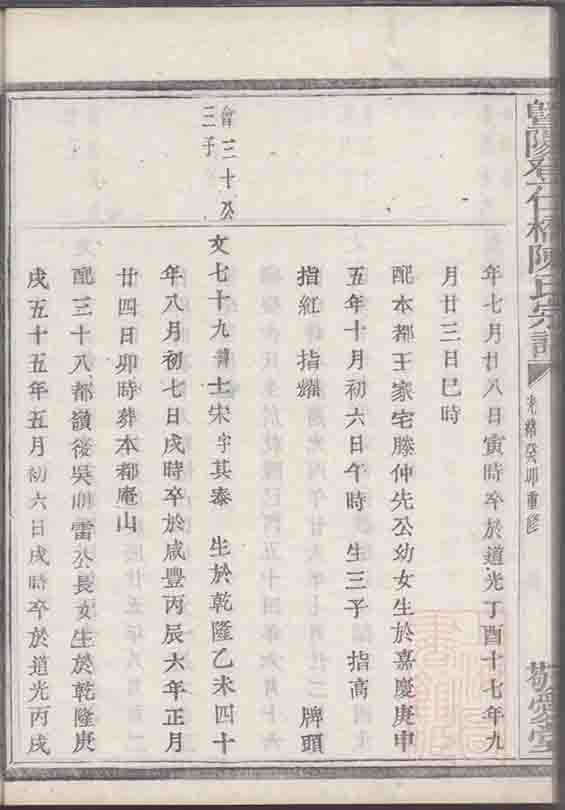 暨陽登仁橋陳氏宗譜
光緒癸卯重修
敬愛堂
年七月廿八日寅時卒於道光丁酉十七年九
月廿三日巳時
配本都王家宅滕仲先公幼女生於嘉慶庚申
五年十月初六日午時 生三子 指高
指紅 指耀 牌頭
三十公
三子
文七十九 諱士宋字其泰 生於乾隆乙未四十
年八月初七日戌時卒於咸豐丙辰六年正月
廿四日卯時葬本都庵山
配三十八都嶺後吳明雷公長女生於乾隆庚
戌五十五年五月初六日戌時卒於道光丙戌